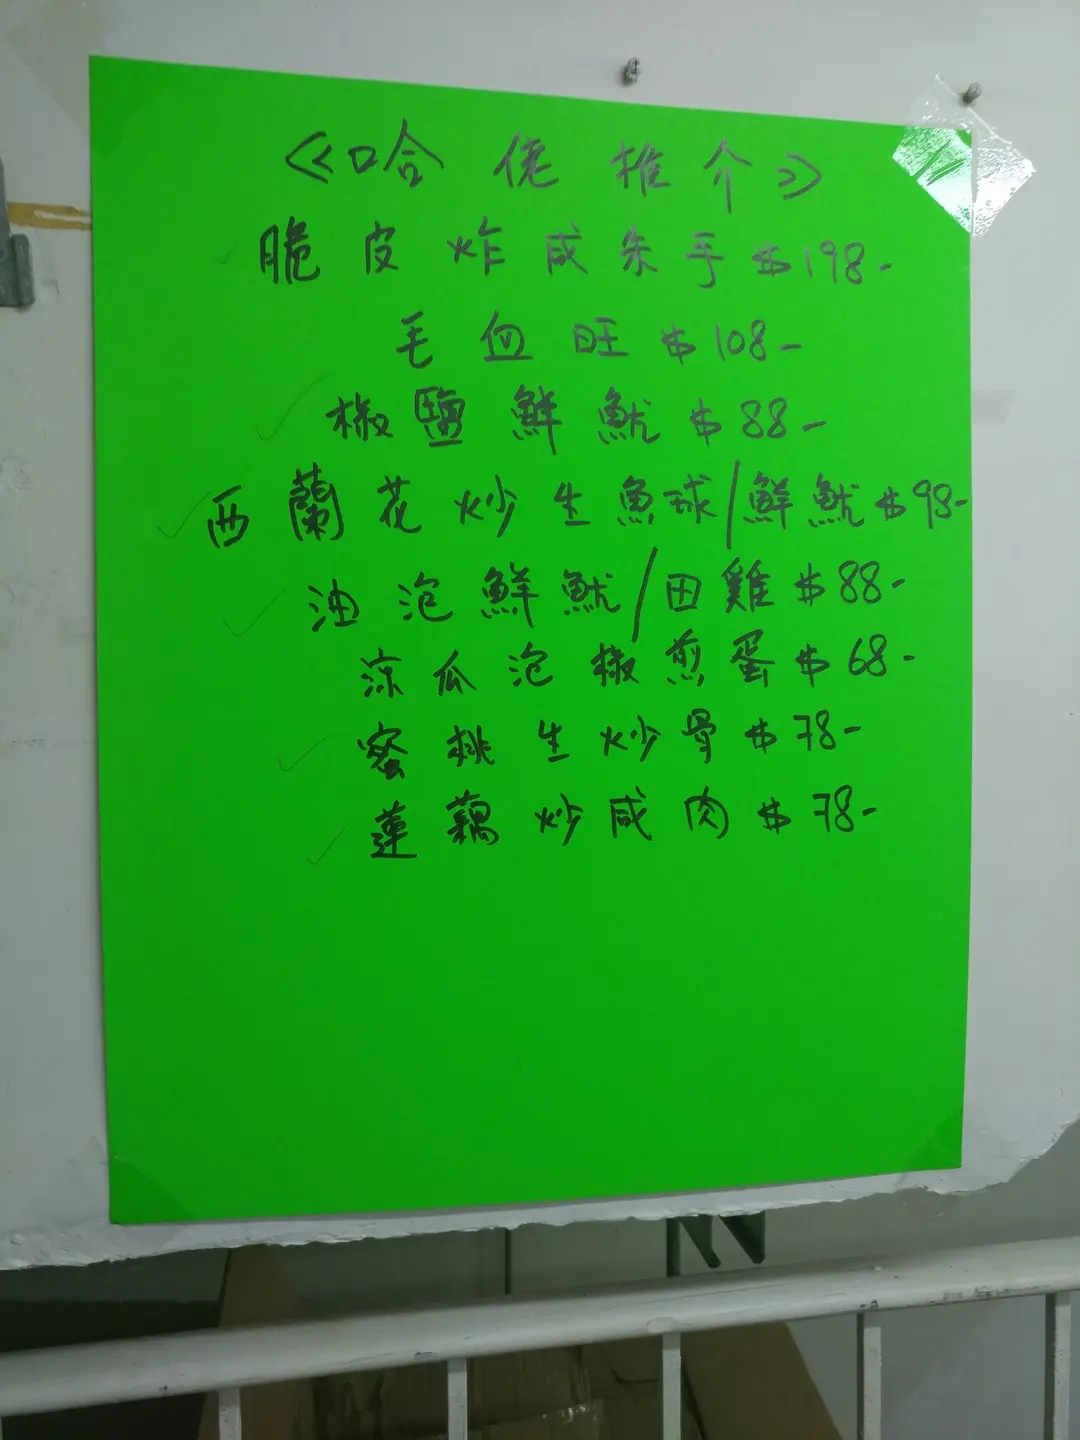 《哈佬推介》
脆皮炸咸朱手$198-
毛血旺$108-
椒鹽鮮魷$88-
西蘭花炒生魚球/鮮魷$98-
油泡鮮魷/田雞$88-
涼瓜泡椒煎蛋$68-
蜜桃生炒骨$78-
蓮藕炒咸肉$78-